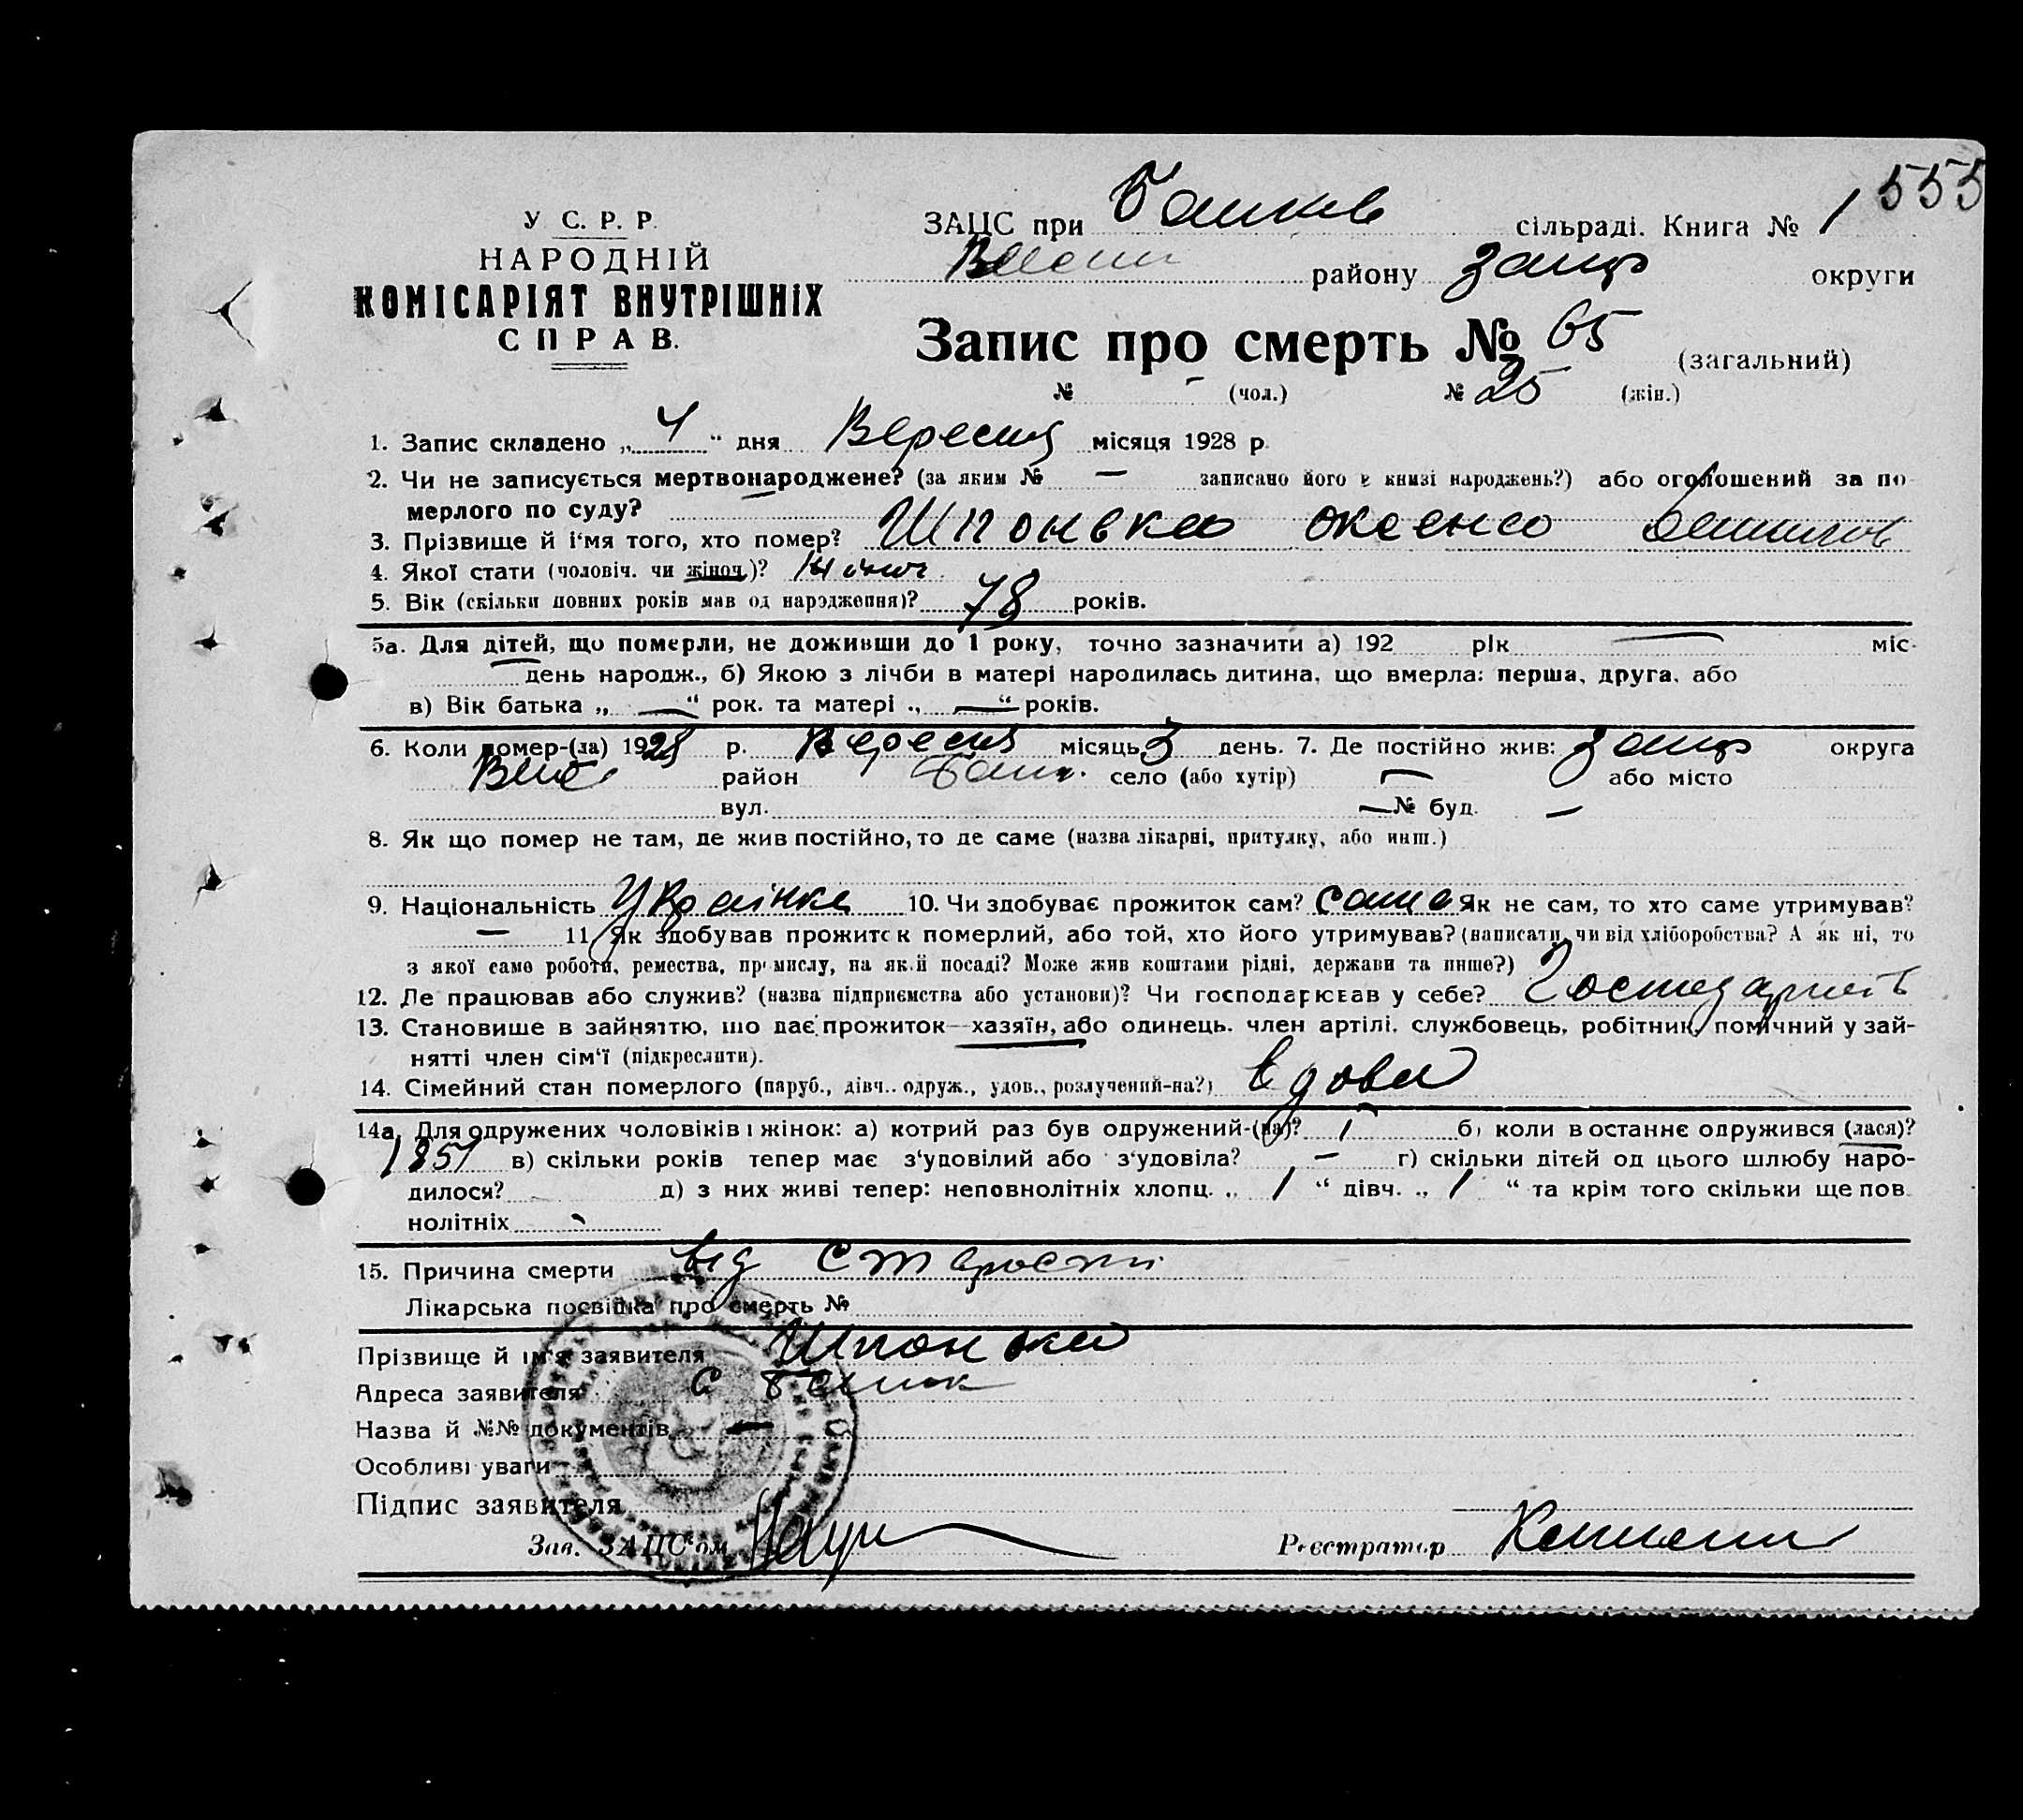 555
У С. Р. Р.
НАРОДНІЙ
КОМІСАРІЯТ ВНУТРІШНІХ
СПРАВ.
ЗАЦС при сільраді. Книга № 1
району Запор округи
Запис про смерть № 65 (загальний)
№ - (чол.) № 25 (жін.)
1. Запис складено „ 4 “ дня Вересня місяця 1928 р.
2. Чи не записується мертвонароджене? (за яким № — записано його в книзі народжень?) або оголошений за по
мерлого по суду?
3. Прізвище й і‘мя того, хто помер? Шпонька Оксена
4. Якої стати (чоловіч. чи жіноч.)? жіноч
5. Вік (скільки повних років мав од народження)? 78 років.
5а. Для дітей, що померли, не доживши до 1 року, точно зазначити а) 192 рік — міс.
— день народж., б) Якою з лічби в матері народилась дитина, що вмерла: перша, друга, або
в) Вік батька „ — “ рок. та матері „ — “ років.
6. Коли помер-(ла) 1928 р. Вересня місяць 3 день. 7. Де постійно жив: Запор округа
район село (або хутір) — або місто
вул. — № буд. —
8. Як що помер не там, де жив постійно, то де саме (назва лікарні, притулку, або инш.)
9. Національність Українка 10. Чи здобуває прожиток сам? сама Як не сам, то хто саме утримував?
— 11. Як здобував прожиток померлий, або той, хто його утримував? (написати, чи від хліборобства? А як ні, то
з якої саме роботи, ремества, промислу, на якій посаді? Може жив коштами рідні, держави та инше?)
12. Де працював або служив? (назва підприємства або установи)? Чи господарював у себе?
13. Становише в зайняттю, що дає прожиток—хазяїн, або одинець. член артілі, службовець, робітник, помічний у зай-
нятті член сім‘ї (підкреслити).
14. Сімейний стан померлого (паруб., дівч.. одруж., удов., розлучений-на?) вдова
14а. Для одружених чоловіків і жінок: а) котрий раз був одружений-(на)? 1 б) коли в останнє одружився (лася)?
в) скільки років тепер має з‘удовілий або з‘удовіла? — г) скільки дітей од цього шлюбу наро-
дилося? д) з них живі тепер: неповнолітніх хлопц. „ 1 “ дівч. „ 1 “ та крім того скільки ще пов.
нолітніх
15. Причина смерти від старости
Лікарська посвідка про смерть №
Прізвище й ім‘я заявителя Шпонька
Адреса заявителя с
Назва й №№ документів —
Особливі уваги
Підпис заявителя
Зав. ЗАЦС‘ом Реєстратор